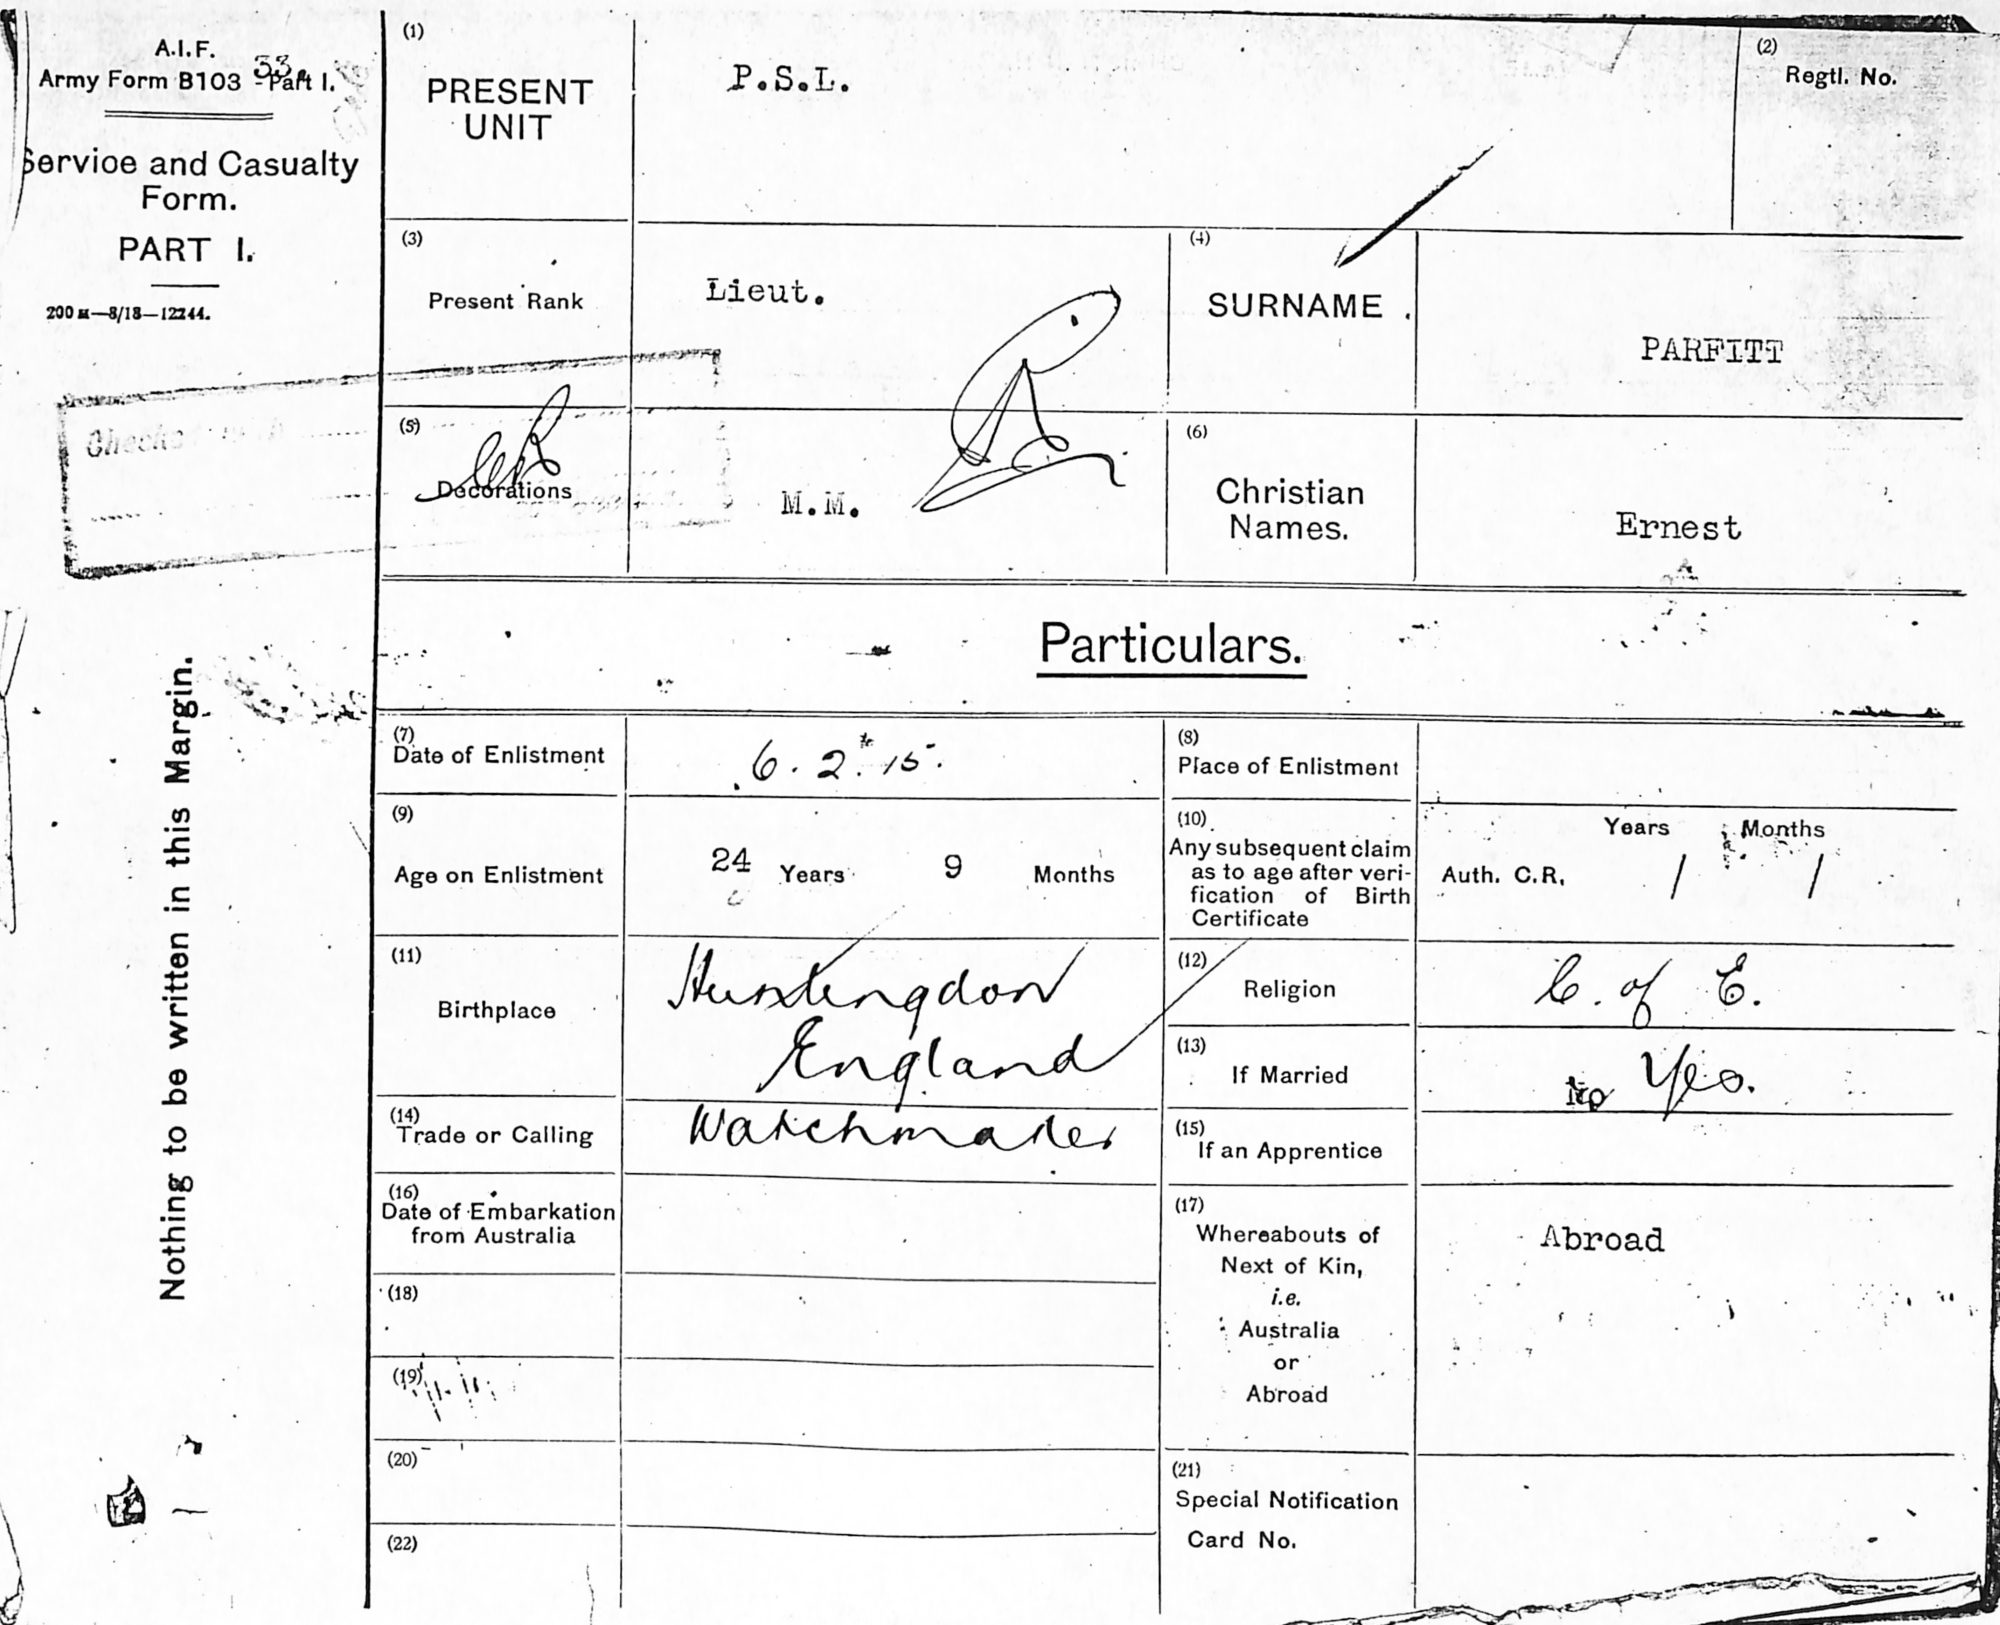 A.I.F.
Army Form B103 - Part I.
33
Service and Casualty
Form.
PART I.
200 M—8/18—12244.
Checked with
Nothing to be written in this Margin.
(1)
PRESENT
UNIT
P.S.L.
(2)
Regtl. No.
(3)
Present Rank
Lieut.
(4)
SURNAME
PARFITT
(5)
Decorations
M.M.
(6)
Christian
Names.
Ernest
Particulars.
(7)
Date of Enlistment
6.2.15.
(8)
Place of Enlistment
(9)
Age on Enlistment
24 Years 9 Months
(10)
Any subsequent claim
as to age after veri-
fication of Birth
Certificate
Years Months
Auth. C.R. / /
(11)
Birthplace
Huntingdon
England
(12)
Religion
C. of E.
(13)
If Married
No Yes.
(14)
Trade or Calling
Watchmaker
(15)
If an Apprentice
(16)
Date of Embarkation
from Australia
(17)
Whereabouts of
Next of Kin,
i.e.
Australia
or
Abroad
Abroad
(18)
(19)
(20)
(21)
Special Notification
Card No.
(22)